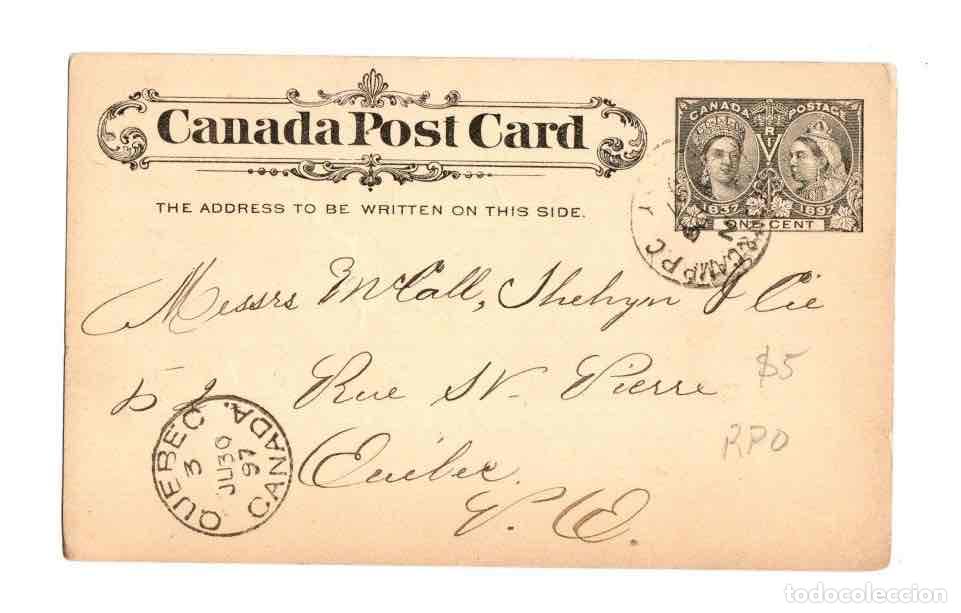 Canada Post Card
THE ADDRESS TO BE WRITTEN ON THIS SIDE.
CANADA POSTAGE
V R I
1837 1897
ONE CENT
CAMP. P.C
Messrs McCall, Shehyn & Cie
Rue St. Pierre
Québec
P. Q.
$5
RPO
QUEBEC
3
JU 30
97
CANADA.
todocoleccion